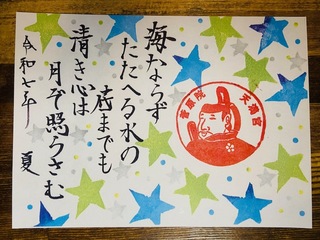 海ならず
たたへる水の
底までも
清き心は
月ぞ照らさむ
令和七年 夏
菅原院 天満宮